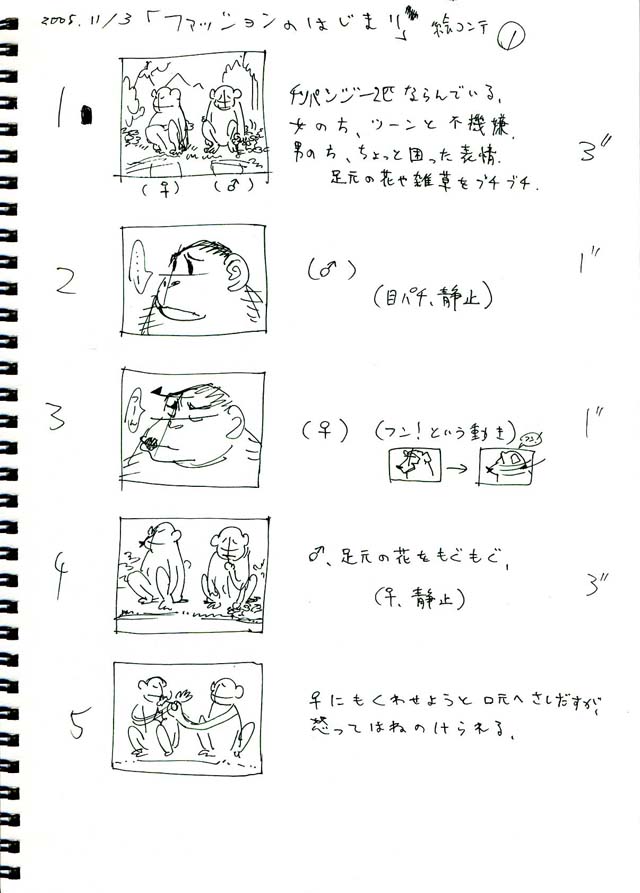 2005.11/3「ファッションのはじまり」絵コンテ ①
1
チンパンジー2匹ならんでいる。
女のち、ツーンと不機嫌。
男のち、ちょっと困った表情。
足元の花や雑草をブチブチ。
3"
(♀) (♂)
2
……
(♂)
(目パチ、静止)
1"
3
(♀) (フン!という動き)
→
1"
4
♂、足元の花をもぐもぐ。
(♀、静止)
3"
5
♀にもくわせようと口元へさしだすが、
怒ってはねのけられる。